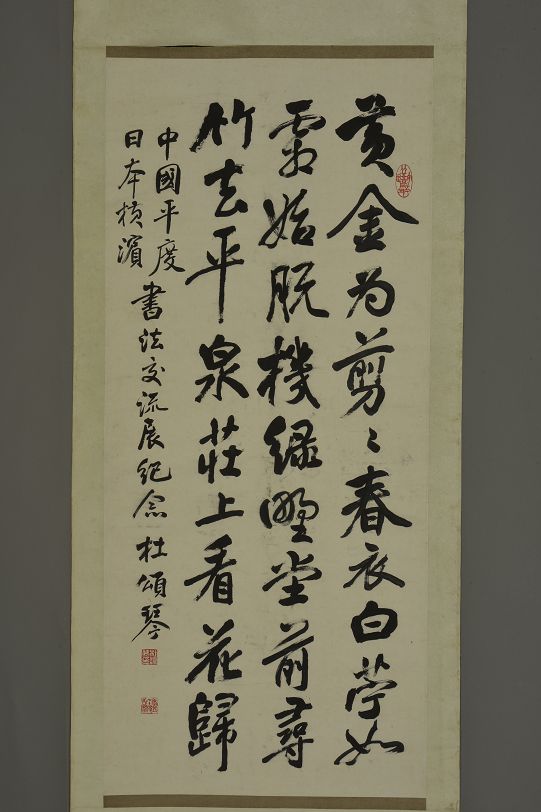 黄金为剪〻春衣白苧如
霜始脱機緑野堂前尋
竹去平泉莊上看花歸
中國平度
日本横濱
書法交流展紀念 杜頌琴